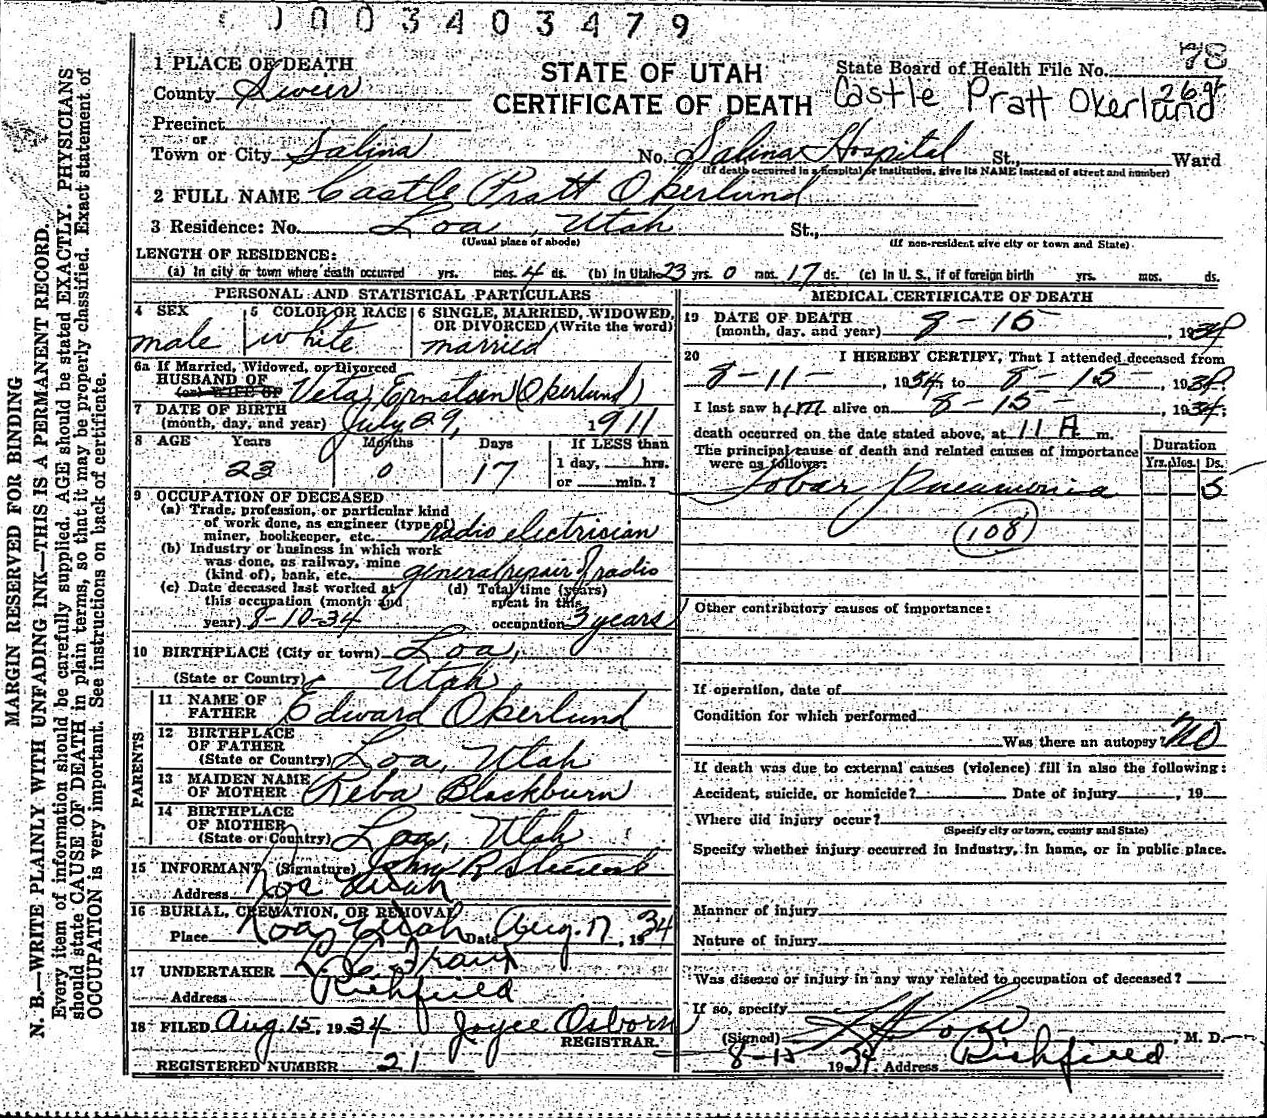 0003403479
1 PLACE OF DEATH
County Sevier
Precinct
or
Town or City Salina
STATE OF UTAH
CERTIFICATE OF DEATH
State Board of Health File No. 78
Castle Pratt Okerlund
No. Salina Hospital St., Ward
(If death occurred in a hospital or institution, give its NAME instead of street and number)
2 FULL NAME Castle Pratt Okerlund
3 Residence: No. Loa, Utah St.,
(Usual place of abode) (If non-resident give city or town and State)
LENGTH OF RESIDENCE:
(a) In city or town where death occurred yrs. mos. 4 ds. (b) in Utah 23 yrs. 0 mos. 17 ds. (c) In U. S., if of foreign birth yrs. mos. ds.
PERSONAL AND STATISTICAL PARTICULARS
4 SEX
male
5 COLOR OR RACE
white
6 SINGLE, MARRIED, WIDOWED, OR DIVORCED (Write the word)
married
6a If Married, Widowed, or Divorced
HUSBAND OF
(or) WIFE OF Veta Ernstsen (Okerlund)
7 DATE OF BIRTH
(month, day, and year) July 29, 1911
8 AGE Years Months Days If LESS than
23 0 17 1 day, hrs.
or min.?
9 OCCUPATION OF DECEASED
(a) Trade, profession, or particular kind
of work done, as engineer (type of)
miner, bookkeeper, etc. radio electrician
(b) Industry or business in which work
was done, as railway, mine
(kind of), bank, etc. general repair of radio
(c) Date deceased last worked at
this occupation (month and
year) 8-10-34
(d) Total time (years)
spent in this
occupation 3 years
10 BIRTHPLACE (City or town) Loa,
(State or Country) Utah
PARENTS
11 NAME OF
FATHER Edward Okerlund
12 BIRTHPLACE
OF FATHER
(State or Country) Loa, Utah
13 MAIDEN NAME
OF MOTHER Reba Blackburn
14 BIRTHPLACE
OF MOTHER
(State or Country) Loa, Utah
15 INFORMANT (Signature) John R
Address Loa Utah
16 BURIAL, CREMATION, OR REMOVAL
Place Loa, Utah Date Aug. 17, 1934
17 UNDERTAKER
Address Richfield
18 FILED Aug. 15, 1934 Joyce Osborn
REGISTRAR.
REGISTERED NUMBER 21
MEDICAL CERTIFICATE OF DEATH
19 DATE OF DEATH
(month, day, and year) 8-15, 1934
20 I HEREBY CERTIFY, That I attended deceased from
8-11-, 1934, to 8-15-, 1934
I last saw him alive on 8-15-, 1934,
death occurred on the date stated above, at 11 A m.
The principal cause of death and related causes of importance
were as follows:
Duration
Yrs. Mos. Ds.
Lobar Pneumonia 5
108
Other contributory causes of importance:
If operation, date of
Condition for which performed
Was there an autopsy? No
If death was due to external causes (violence) fill in also the following:
Accident, suicide, or homicide? Date of injury , 19
Where did injury occur?
(Specify city or town, county and State)
Specify whether injury occurred in industry, in home, or in public place.
Manner of injury
Nature of injury
Was disease or injury in any way related to occupation of deceased?
If so, specify
(Signed) , M. D.
1934. Address Richfield
MARGIN RESERVED FOR BINDING
N. B.—WRITE PLAINLY WITH UNFADING INK—THIS IS A PERMANENT RECORD.
Every item of information should be carefully supplied. AGE should be stated EXACTLY. PHYSICIANS
should state CAUSE OF DEATH in plain terms, so that it may be properly classified. Exact statement of
OCCUPATION is very important. See instructions on back of certificate.